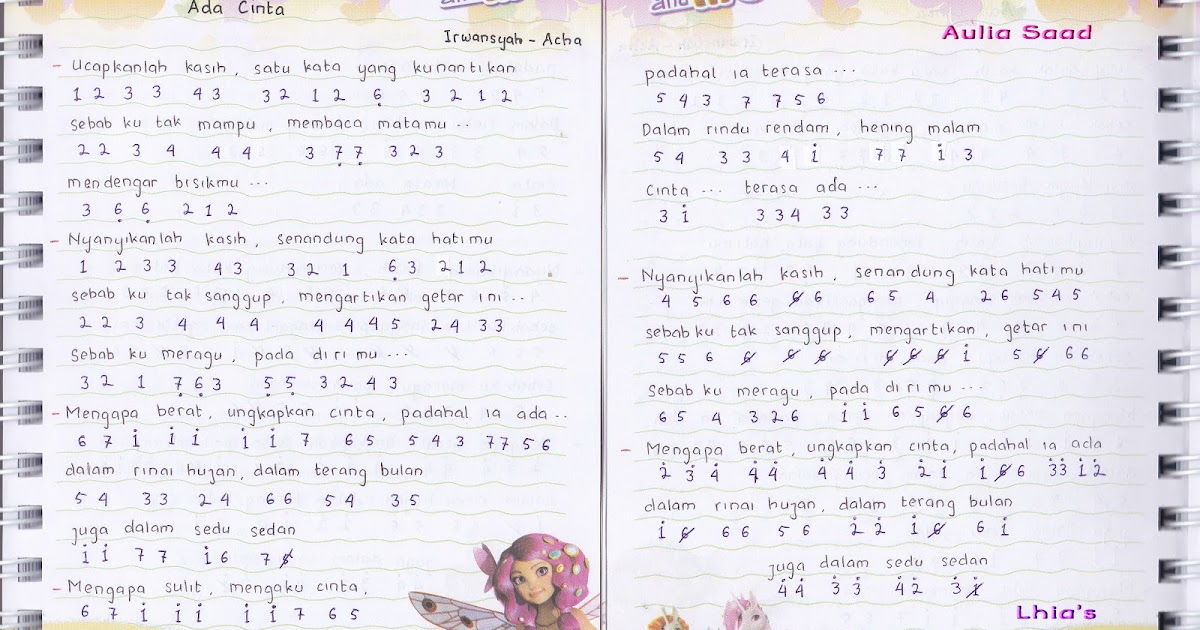 Ada Cinta
Irwansyah - Acha
- Ucapkanlah kasih, satu kata yang kunantikan
1 2 3 3 4 3 3 2 1 2 6̣ 3 2 1 2
sebab ku tak mampu, membaca matamu ..
2 2 3 4 4 4 3 7̣ 7̣ 3 2 3
mendengar bisikmu ...
3 6̣ 6̣ 2 1 2
- Nyanyikanlah kasih, senandung kata hatimu
1 2 3 3 4 3 3 2 1 6̣ 3 2 1 2
sebab ku tak sanggup, mengartikan getar ini ..
2 2 3 4 4 4 4 4 4 5 2 4 3 3
Sebab ku meragu, pada dirimu ...
3 2 1 7̣ 6̣ 3 5̣ 5̣ 3 2 4 3
- Mengapa berat, ungkapkan cinta, padahal ia ada ..
6 7 i i i i i 7 6 5 5 4 3 7 7 5 6
dalam rinai hujan, dalam terang bulan
5 4 3 3 2 4 6 6 5 4 3 5
juga dalam sedu sedan
i i 7 7 i 6 7 5̸
- Mengapa sulit, mengaku cinta,
6 7 i i i i i 7 6 5
Aulia Saad
padahal ia terasa ...
5 4 3 7 7 5 6
Dalam rindu rendam, hening malam
5 4 3 3 4 i 7 7 i 3
Cinta ... terasa ada ...
3 i 3 3 4 3 3
- Nyanyikanlah kasih, senandung kata hatimu
4 5 6 6 6̸ 6 6 5 4 2 6 5 4 5
sebab ku tak sanggup, mengartikan, getar ini
5 5 6 6̸ 6̸ 6̸ 6̸ 6̸ 6̸ i 5 6̸ 6 6
Sebab ku meragu, pada dirimu ...
6 5 4 3 2 6 i i 6 5 6̸ 6
- Mengapa berat, ungkapkan cinta, padahal ia ada
2̇ 3̇ 4̇ 4̇ 4̇ 4̇ 4̇ 3̇ 2̇ i 1 6̸ 6 3̇ 3̇ i 2̇
dalam rinai hujan, dalam terang bulan
i 6̸ 6 6 5 6 2̇ 2̇ i 6̸ 6 i
juga dalam sedu sedan
4̇ 4̇ 3̇ 3̇ 4̇ 2̇ 3̇ 1̸̇
Lhia's